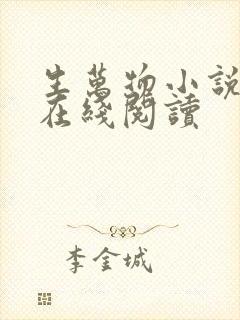 生萬物小說
在綫閱讀
李金城